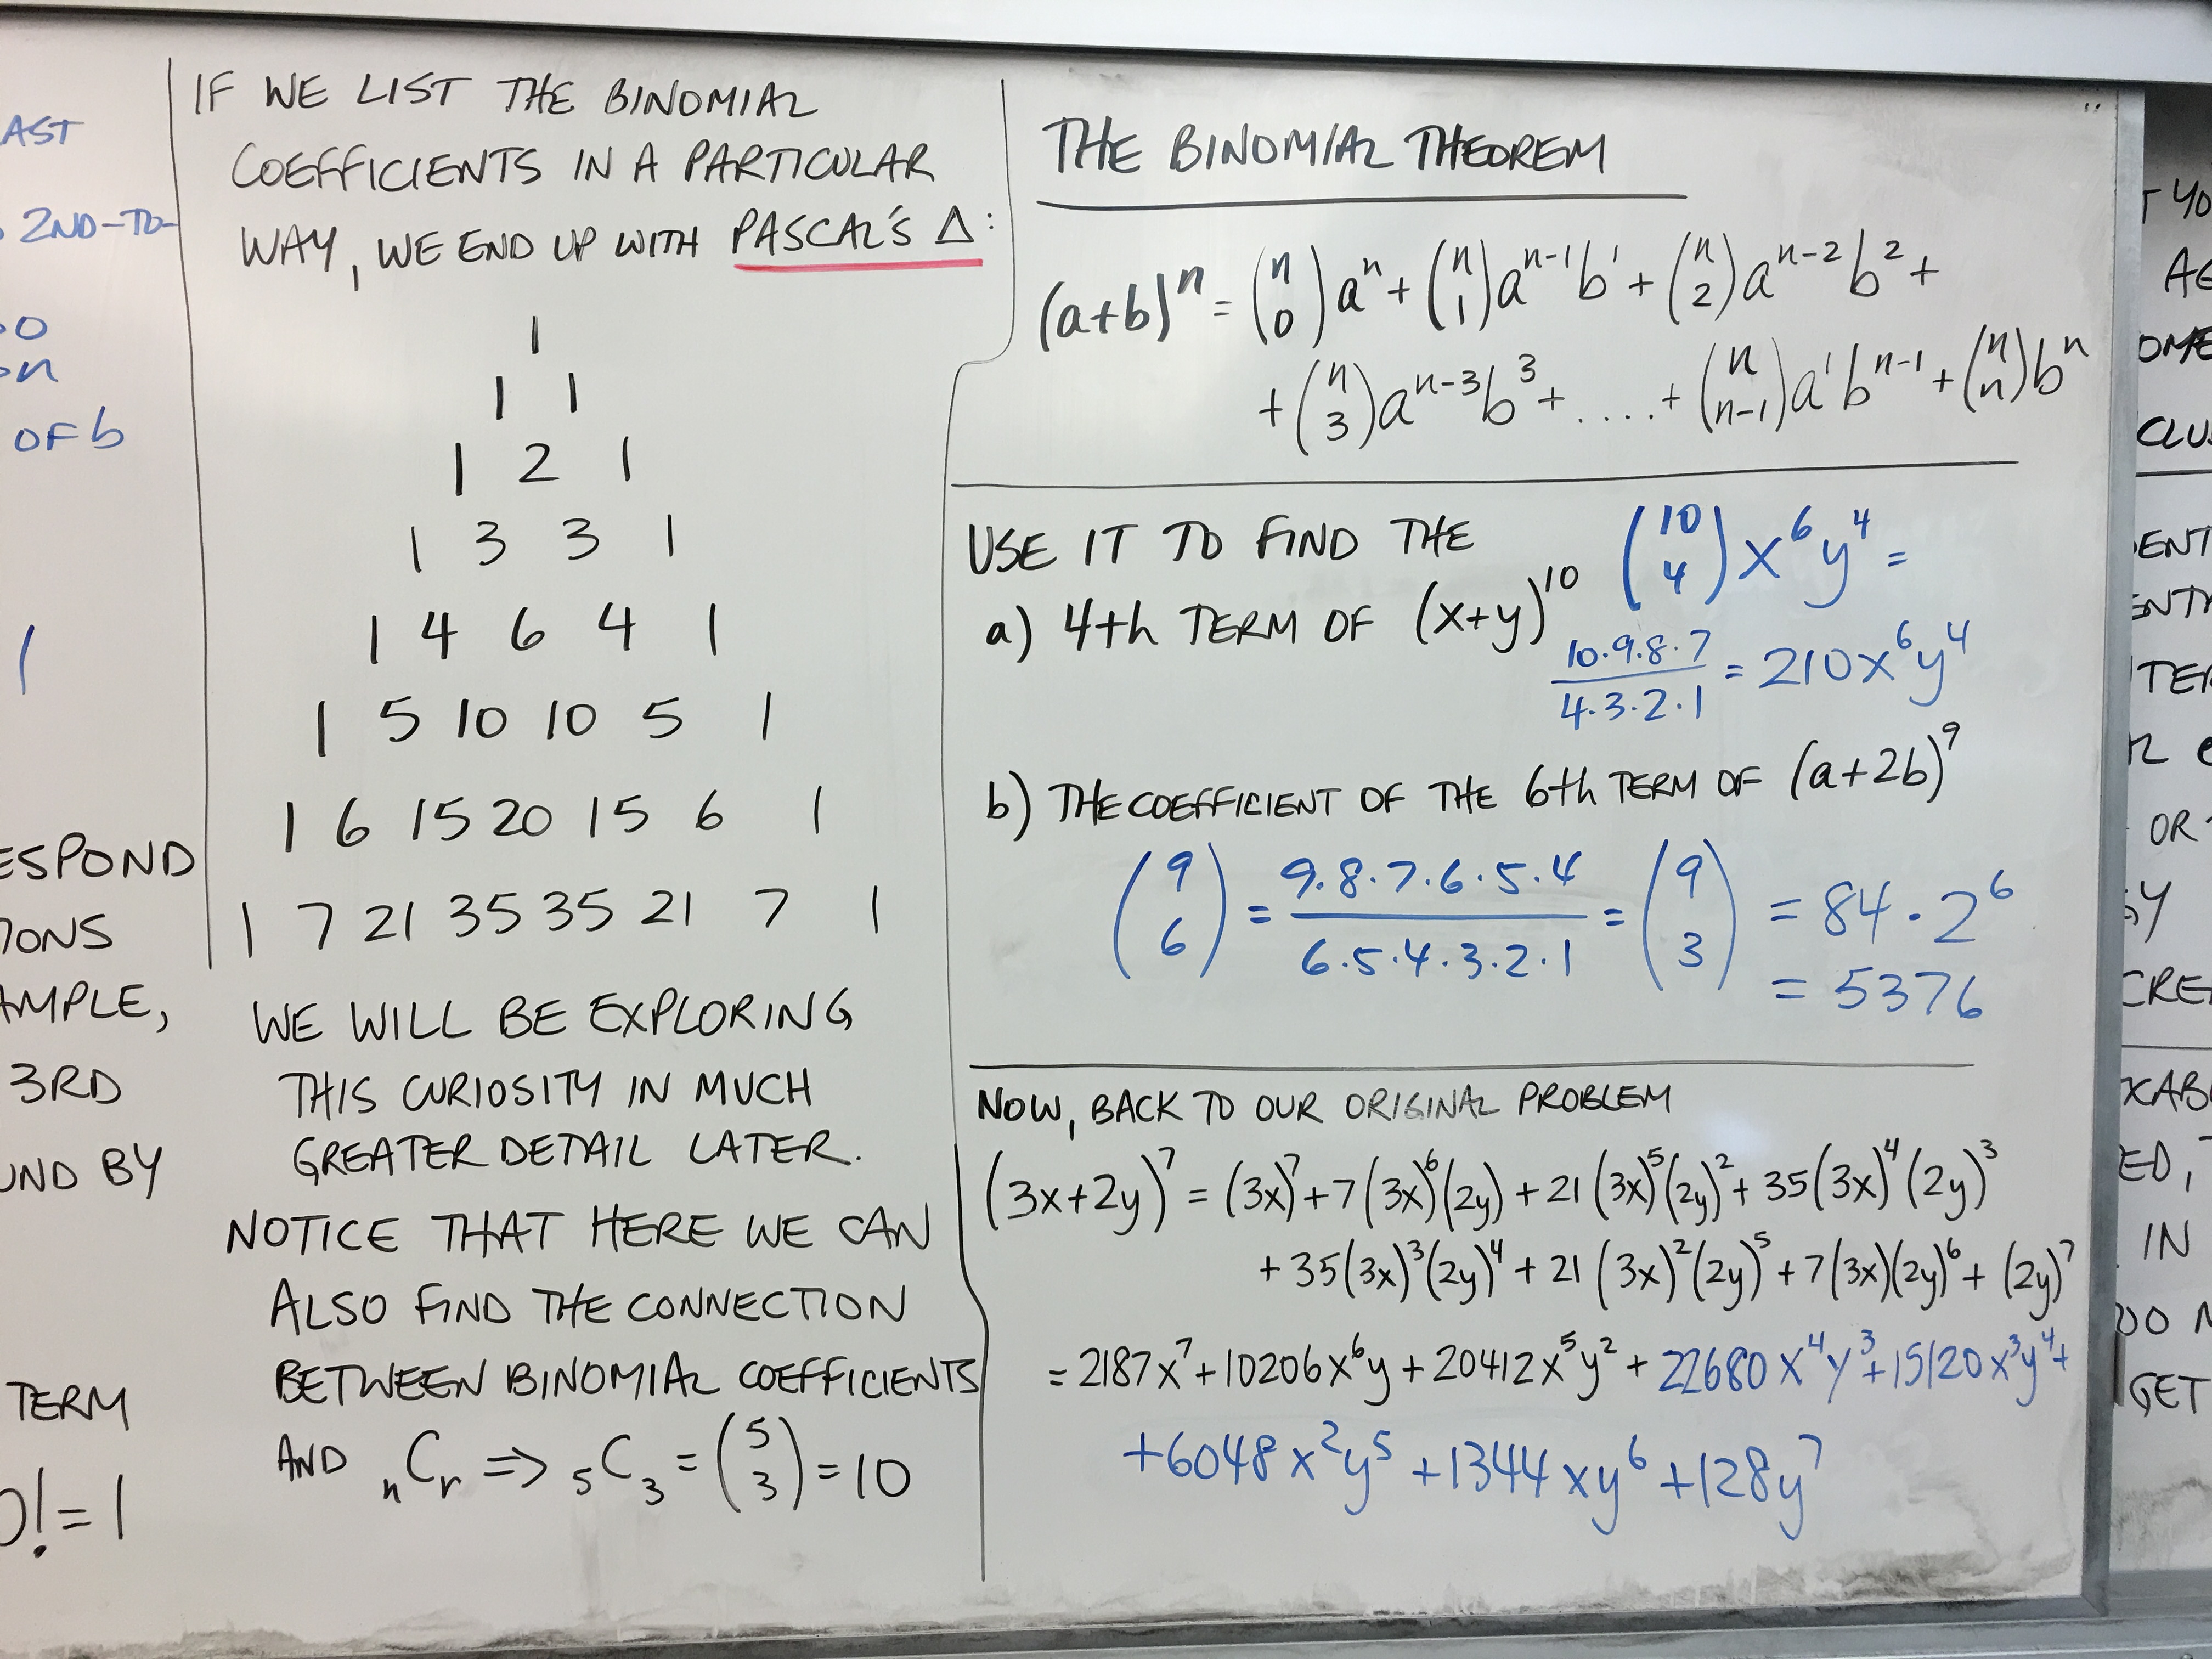 AST
2ND-TO-
0
n
OF b
1
ESPOND
IONS
AMPLE,
3RD
UND BY
TERM
0! = 1
IF WE LIST THE BINOMIAL
COEFFICIENTS IN A PARTICULAR
WAY, WE END UP WITH PASCAL'S Δ:
1
1 1
1 2 1
1 3 3 1
1 4 6 4 1
1 5 10 10 5 1
1 6 15 20 15 6 1
1 7 21 35 35 21 7 1
WE WILL BE EXPLORING
THIS CURIOSITY IN MUCH
GREATER DETAIL LATER.
NOTICE THAT HERE WE CAN
ALSO FIND THE CONNECTION
BETWEEN BINOMIAL COEFFICIENTS
AND ₙCᵣ ⇒ ₅C₃ = (5 3) = 10
THE BINOMIAL THEOREM
(a+b)ⁿ = (n 0)aⁿ + (n 1)aⁿ⁻¹b¹ + (n 2)aⁿ⁻²b² +
+ (n 3)aⁿ⁻³b³ + .... + (n n-1)a¹bⁿ⁻¹ + (n n)bⁿ
USE IT TO FIND THE
a) 4th TERM OF (x+y)¹⁰
(10 4)x⁶y⁴ =
10·9·8·7 / 4·3·2·1 = 210x⁶y⁴
b) THE COEFFICIENT OF THE 6th TERM OF (a+2b)⁹
(9 6) = 9·8·7·6·5·4 / 6·5·4·3·2·1 = (9 3) = 84·2⁶
= 5376
NOW, BACK TO OUR ORIGINAL PROBLEM
(3x+2y)⁷ = (3x)⁷ + 7(3x)⁶(2y) + 21(3x)⁵(2y)² + 35(3x)⁴(2y)³
+ 35(3x)³(2y)⁴ + 21(3x)²(2y)⁵ + 7(3x)(2y)⁶ + (2y)⁷
= 2187x⁷ + 10206x⁶y + 20412x⁵y² + 22680x⁴y³ + 15120x³y⁴ +
+ 6048x²y⁵ + 1344xy⁶ + 128y⁷
YO
OME
CLU
ENT
ENT
TER
OR
CRE
XAB
ED,
IN
GET